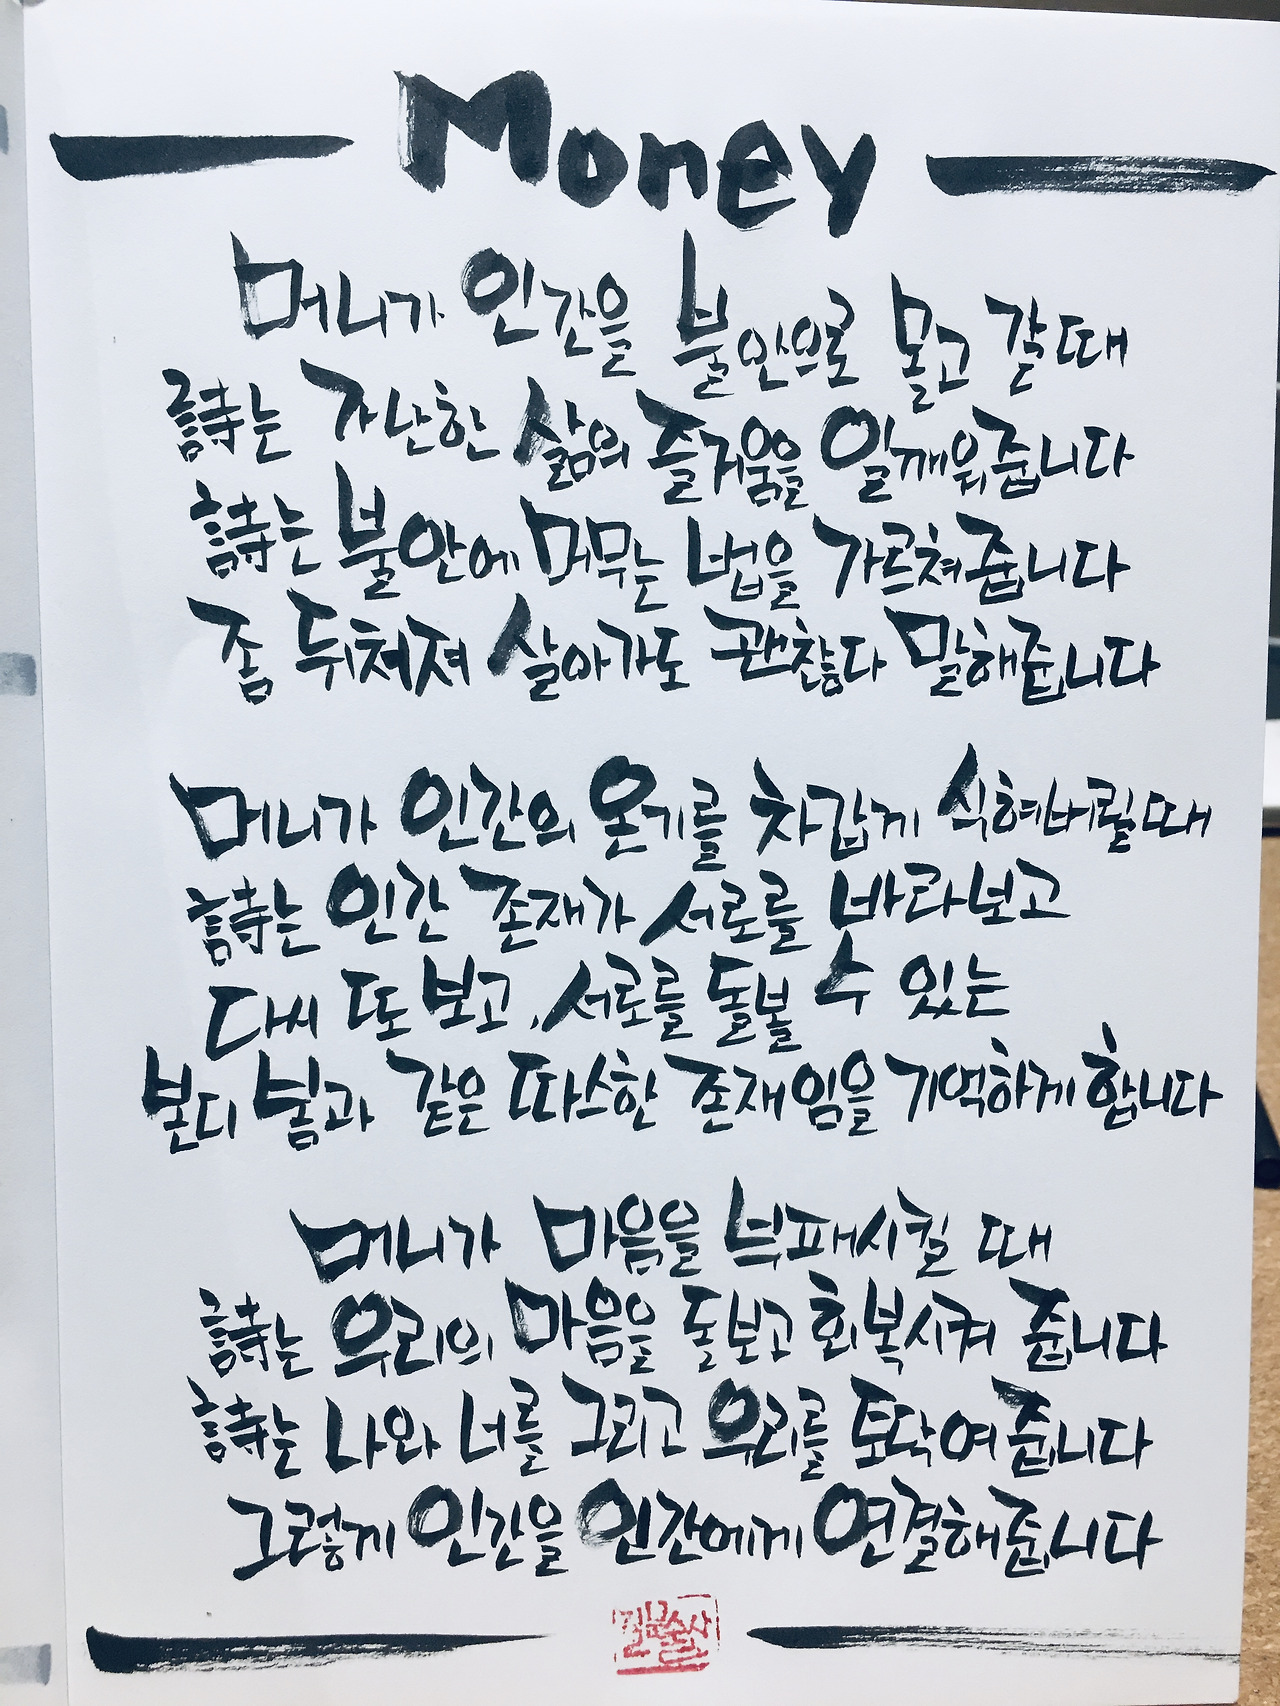 Money
머니가 인간을 불안으로 몰고 갈 때
詩는 지난한 삶의 즐거움을 일깨워줍니다
詩는 불안에 머무는 법을 가르쳐줍니다
좀 뒤쳐져 살아가도 괜찮다 말해줍니다
머니가 인간의 온기를 차갑게 식혀버릴 때
詩는 인간 존재가 서로를 바라보고
다시 또 보고, 서로를 돌볼 수 있는
본디 봄과 같은 따스한 존재임을 기억하게 합니다
머니가 마음을 부패시킬 때
詩는 우리의 마음을 돌보고 회복시켜 줍니다
詩는 나와 너를 그리고 우리를 토닥여줍니다
그렇게 인간을 인간에게 연결해줍니다